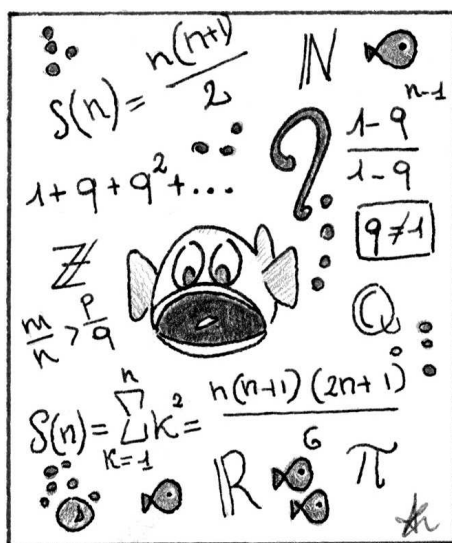 S(n) = n(n+1)/2
ℕ
1+q+q²+...
?
1-q^(n-1)/1-q
q≠1
ℤ
m/n > p/q
ℚ
S(n) = ∑_(k=1)^n k² = n(n+1)(2n+1)/6
ℝ
π